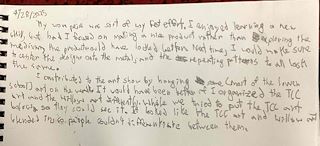 4/28/2025
My wax piece was sort of my first effort. I enjoyed learning a new
skill, but had I focused on making a nice product rather than exploring the
medium, the product would have looked better. Next time, I would make sure
to center the design onto the metal, and the repeating patterns to all look
the same.
I contributed to the art show by hanging some most of the lower
school art on the walls. It would have been better if I organized the TCC
art and the Willow art differently. While we tried to put the TCC art
so they could see it, it looked like the TCC art and Willow art
blended in so people couldn't differentiate between them